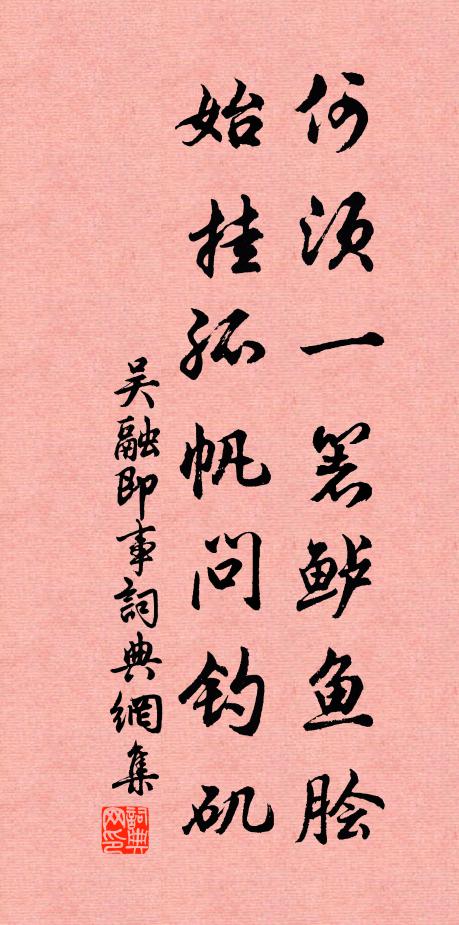 何须一箸鲈鱼脍
始挂孤帆问钓矶
吴融即事詞典網集
詞典网印